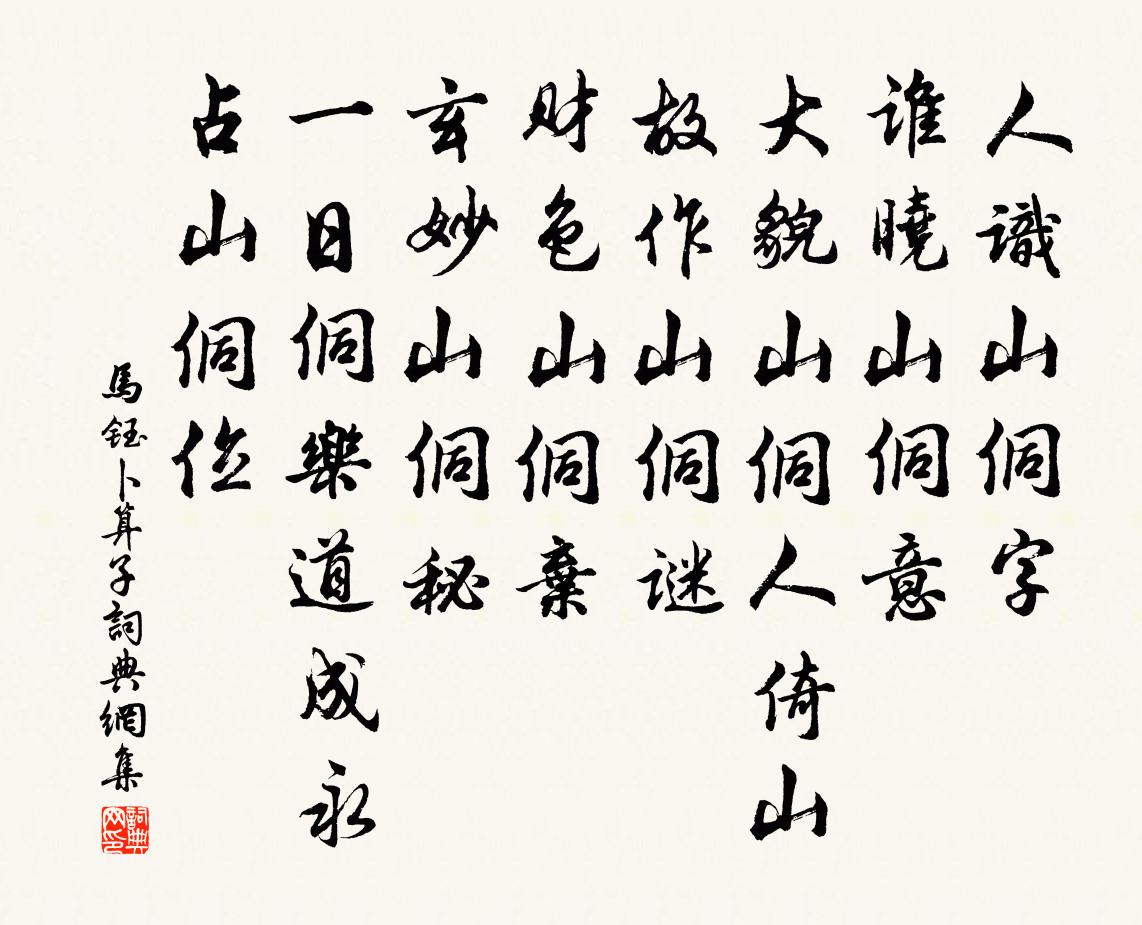 人識山侗字
谁曉山侗意
大貌山侗人倚山
故作山侗谜
财色山侗棄
玄妙山侗秘
一日侗樂道成永
占山侗位
馬鈺卜算子詞典網集
詞典网印